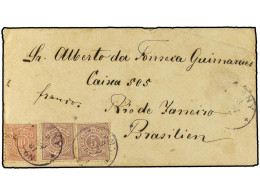 Sr. Alberto da Fonseca Guimaraes
Caixa 505
franco.
Rio de Janeiro
Brasilien
5 5